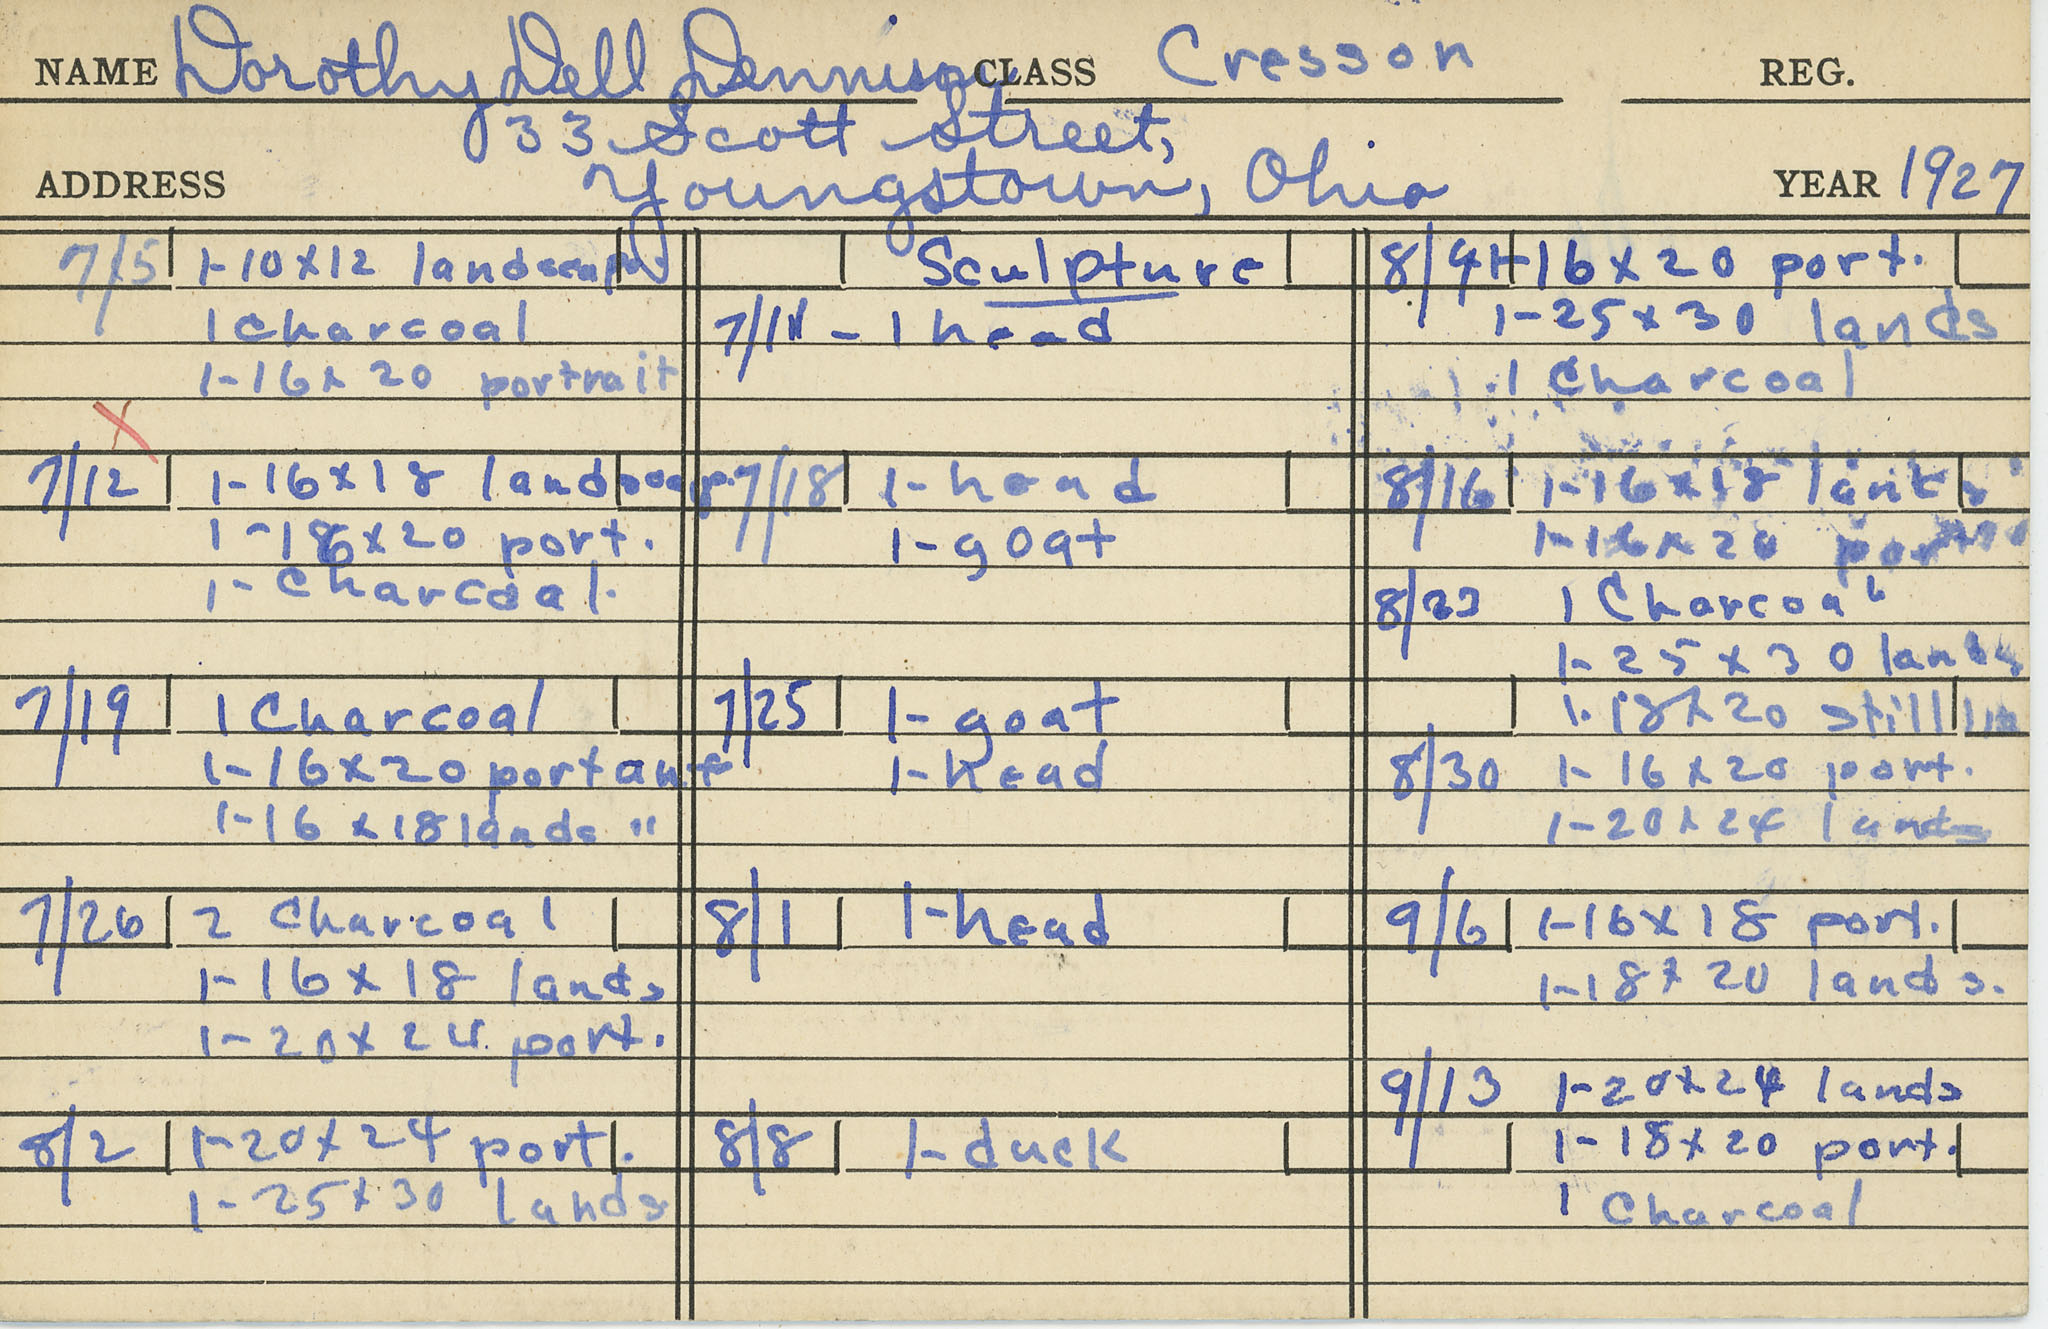 NAME Dorothy Dell Dennison CLASS Cresson REG.
33 Scott Street,
ADDRESS Youngstown, Ohio YEAR 1927
7/5 1-10x12 landscape
1 Charcoal
1-16x20 portrait
7/12 1-16x18 landscap.
1-18x20 port.
1- Charcoal.
7/19 1 Charcoal
1-16x20 portant
1-16x18 lands "
7/26 2 Charcoal
1-16x18 lands
1-20x24 port.
8/2 1-20x24 port.
1-25x30 lands
Sculpture
7/11 - 1 head
7/18 1-head
1-goat
7/25 1-goat
1-head
8/1 1-head
8/8 1-duck
8/9 1-16x20 port.
1-25x30 lands
1 Charcoal
8/16 1-16x18 lands
1-16x20
8/23 1 Charcoal
1-25x30 lands
1-18x20 still
8/30 1-16x20 port.
1-20x24 lands
9/6 1-16x18 port.
1-18x20 lands.
9/13 1-20x24 lands
1-18x20 port.
1 Charcoal